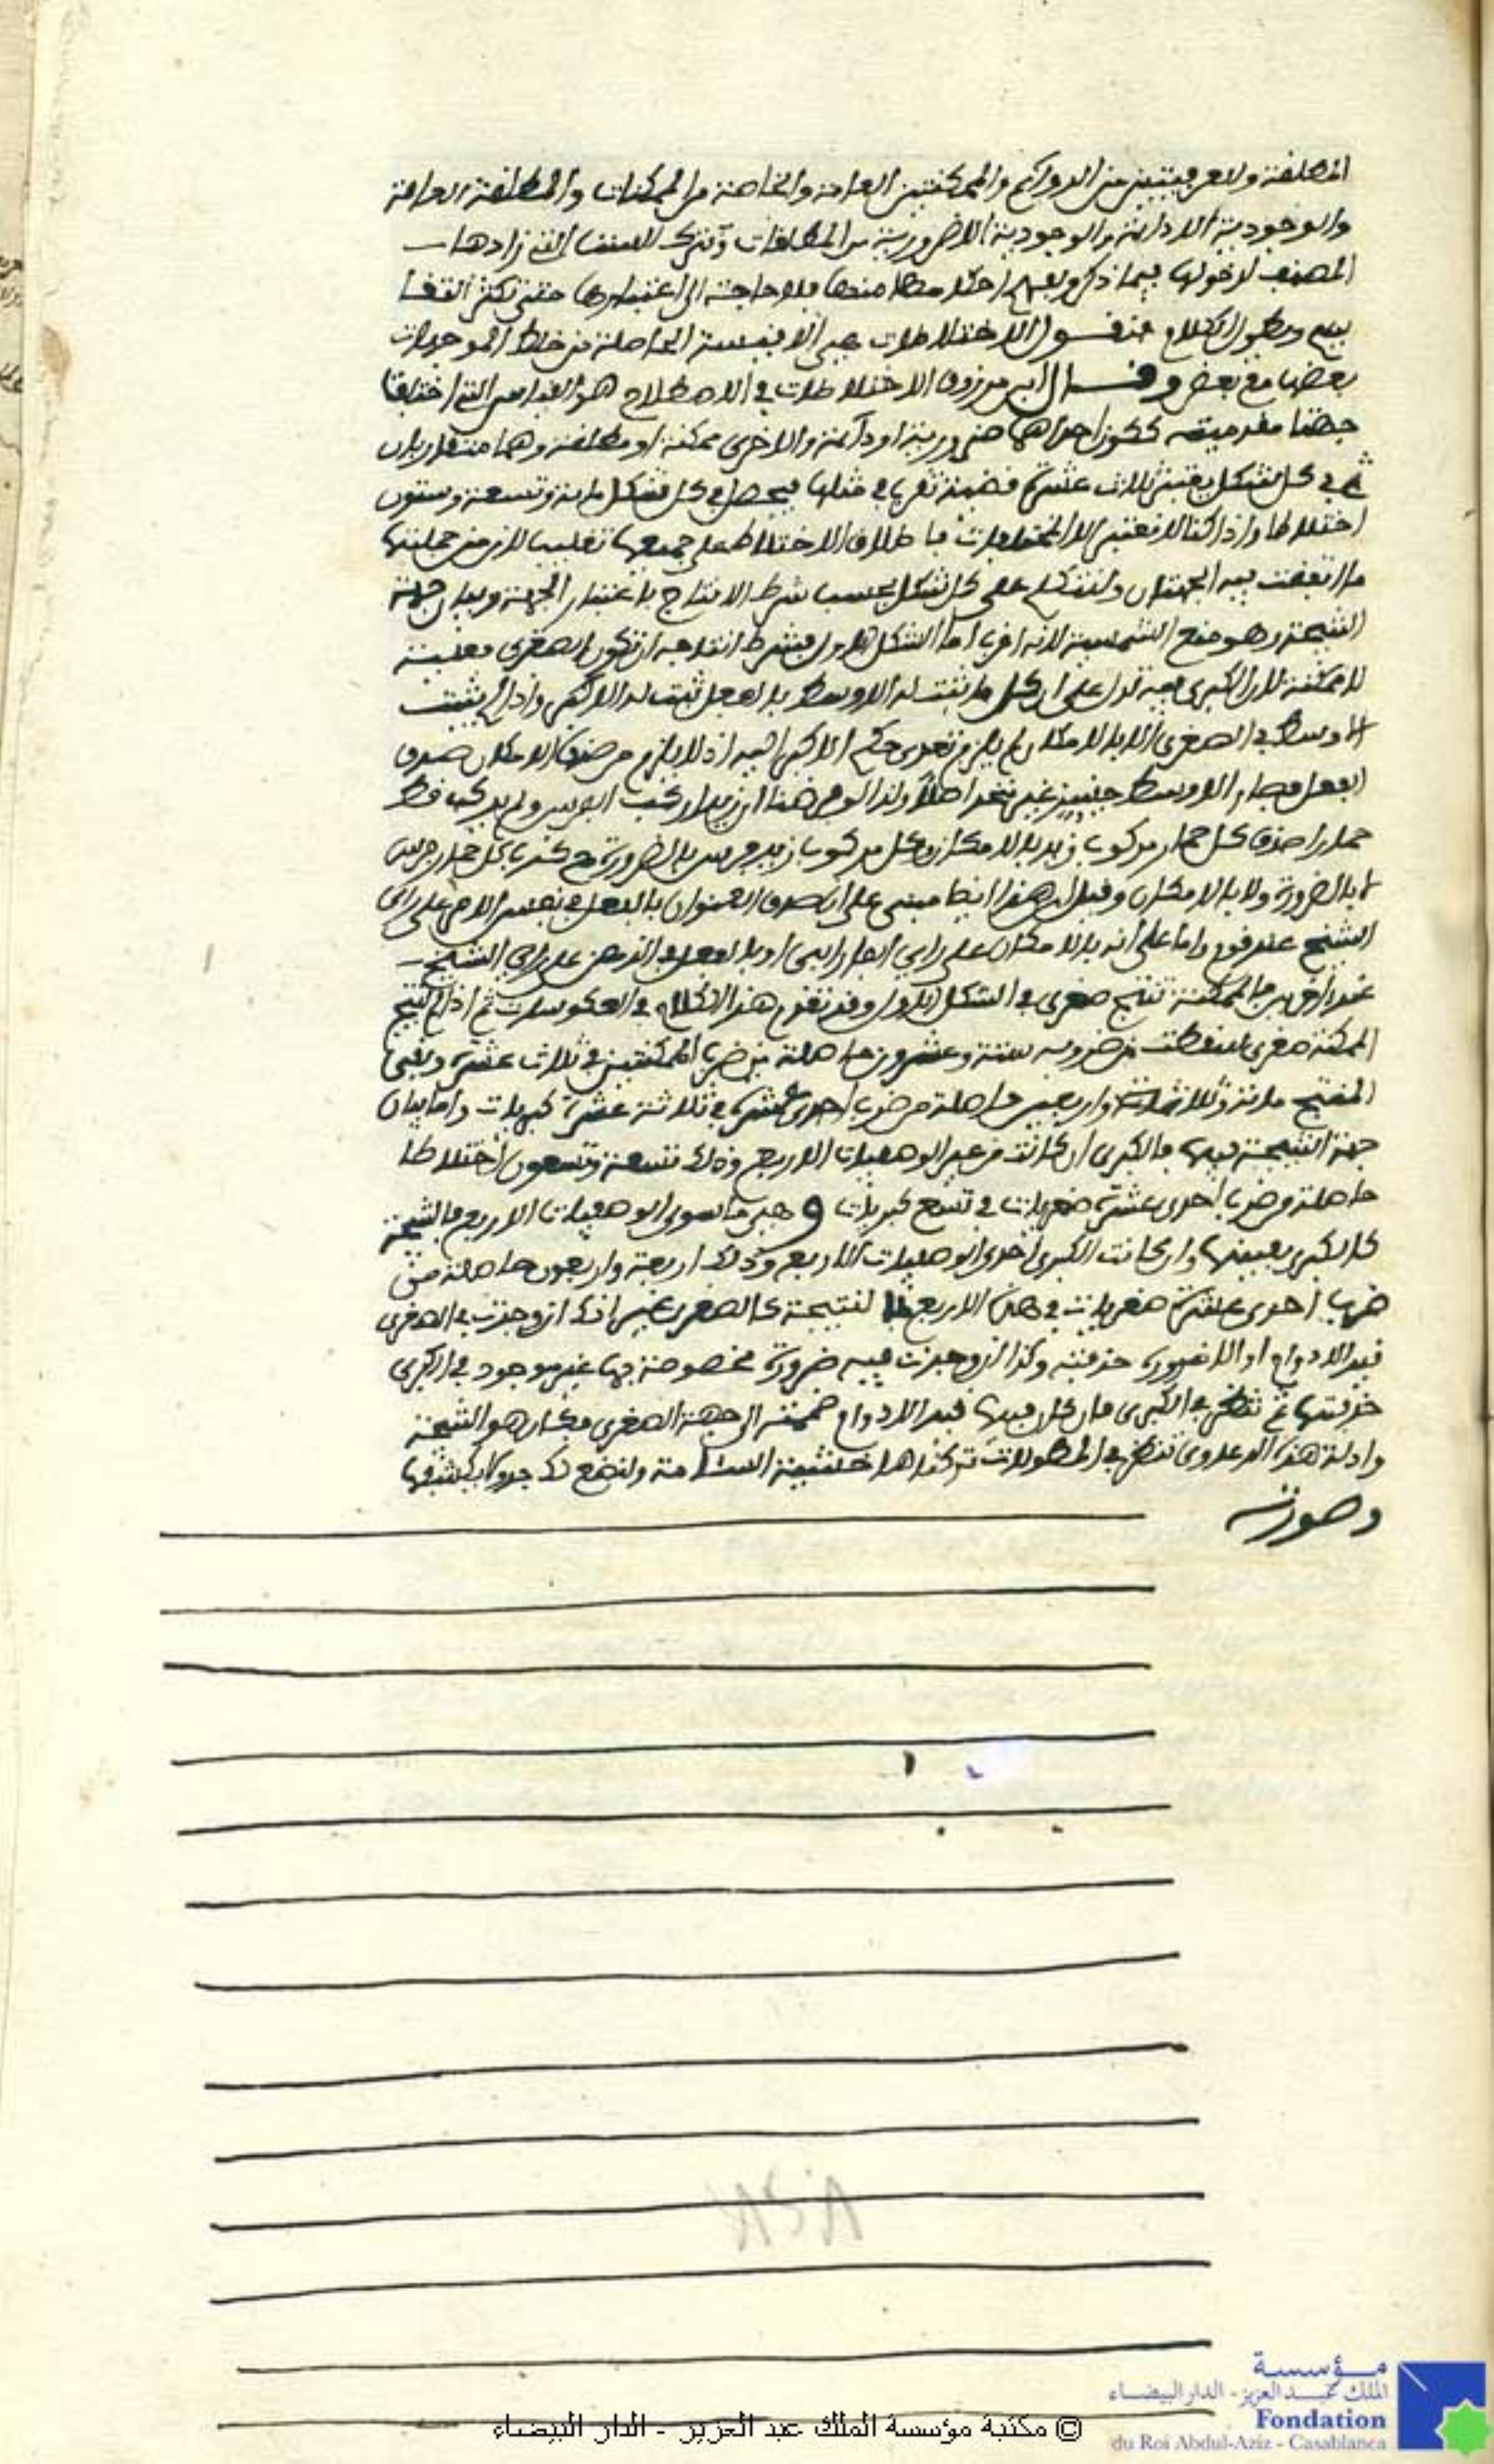 المطلقة والعرفيتين من الدوائم والممكنتين العامة والخاصة من الممكنات والمطلقة العامة
والوجودية اللادائمة والوجودية اللاضرورية من المطلقات ونترك الستة التي زادها
المصنف لدخولها فيما ذكر ويفهم اختلاطها منها فلا حاجة الى اعتبارها حتى يكثر
ويطول الكلام فنقول الاختلاطات هي الاقيسة الحاصلة من خلط الموجهات
بعضها مع بعض وقال ابن مرزوق الاختلاطات في الاصطلاح هو القياس التي اختلفت
جهتا مقدمتيه ككون احداهما ضرورية او دائمة والاخرى ممكنة او مطلقة وهما متقاربان
ثم في كل شكل يعتبر ثلاث عشرة قضية تضرب في مثلها فيحصل في كل شكل مائة وتسعة وستون
اختلاطا واذا كنا لا نعتبر الا المختلطات فاطلاق الاختلاط على جميعها تغليب لان من جملتها
ما اتفقت فيه الجهتان ولنتكلم على كل شكل بحسب شرط الانتاج باعتبار الجهة وبيان جهة
النتيجة وهو صنع الشمسية لانه اقرب اما الشكل الاول فشرط انتاجه ان تكون الصغرى فعلية
لا ممكنة لان الكبرى فيه تدل على ان كل ما ثبت له الاوسط بالفعل ثبت له الاكبر واذا لم يثبت
الاوسط في الصغرى الا بالامكان لم يلزم تعدي حكم الاكبر اليه اذ لا يلزم من صدق الامكان صدق
الفعل فصار الاوسط حينئذ غير متحد اصلا ولذا لو فرضنا ان زيدا ركب الفرس ولم يركب قط
حمارا صدق كل حمار مركوب زيد بالامكان وكل مركوب زيد فرس بالضرورة مع كذب كل حمار فرس
لا بالضرورة ولا بالامكان وقيل ان هذا ايضا مبني على ان صدق العنوان بالفعل في نفس الامر على راي
الشيخ عند قوم واما على انه بالامكان على راي الفارابي او بالفعل في الذهن على راي الشيخ
عند اخرين فالممكنة تنتج صغرى في الشكل الاول وقد تقدم هذا الكلام في العكوسات ثم اذا لم تنتج
الممكنة صغرى سقطت من ضروبه ستة وعشرون حاصلة من ضرب الممكنتين في ثلاث عشرة وبقي
المنتج مائة وثلاثة واربعين حاصلة من ضرب احدى عشرة في ثلاثة عشرة كبريات واما بيان
جهة النتيجة فيها فالكبرى ان كانت من غير الوصفيات الاربع وذلك تسعة وتسعون اختلاطا
حاصلة من ضرب احدى عشرة صغريات في تسع كبريات وهي ما سوى الوصفيات الاربع فالنتيجة
كالكبرى بعينها وان كانت الكبرى احدى الوصفيات الاربع وذلك اربعة واربعون حاصلة من
ضرب احدى عشرة صغريات في هذه الاربع فالنتيجة كالصغرى غير انك ان وجدت في الصغرى
قيد اللادوام او اللاضرورة حذفته وكذا ان وجدت فيه ضرورة مخصوصة بها غير موجود في الكبرى
حذفتها ثم تنظر في الكبرى فان كان فيها قيد اللادوام ضممته الى جهة الصغرى فكان هو النتيجة
وادلة هذه الدعاوى تنظر في المطولات تركناها خشية السآمة ولنضع لك جدولا يكشفها
وصورته
مؤسسة
الملك عبد العزيز - الدار البيضاء
Fondation
du Roi Abdul-Aziz - Casablanca
© مكتبة مؤسسة الملك عبد العزيز - الدار البيضاء